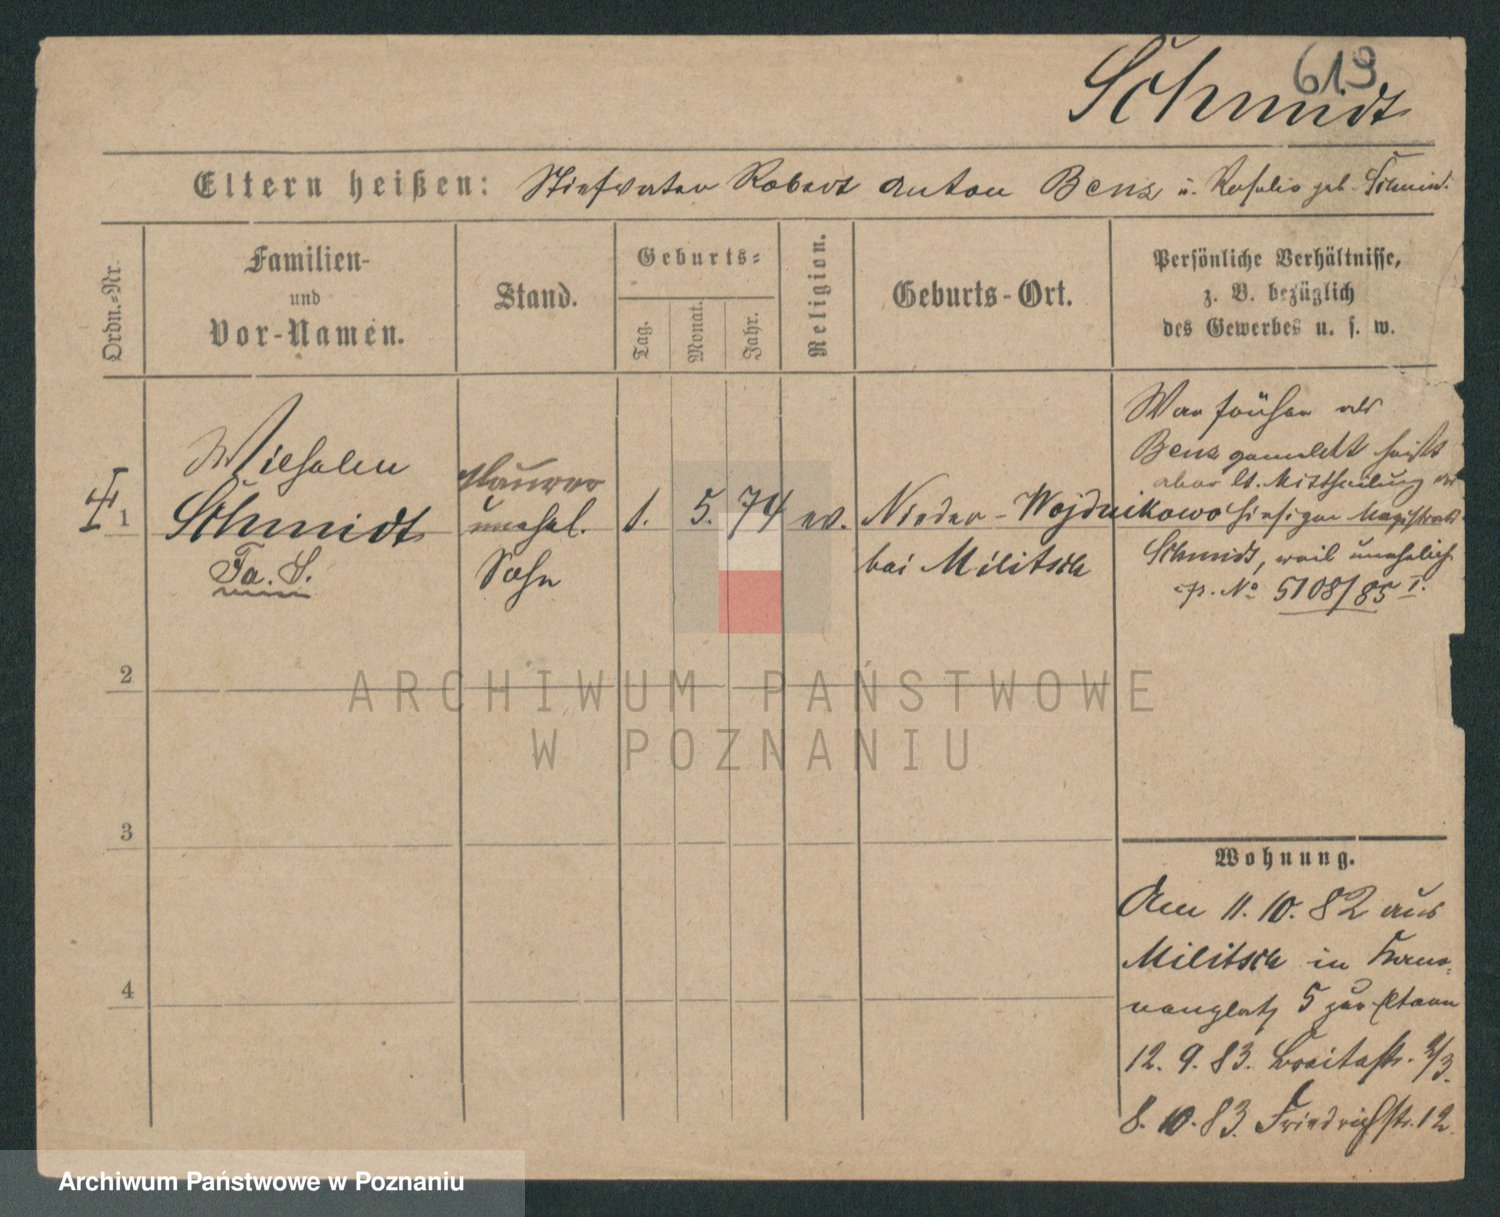 619
Schmidt
Eltern heißen: Stiefvater Robert Anton Benz u. Rosalie geb. Schmidt
Ordn.-Nr.
Familien-
und
Vor-Namen.
Stand.
Geburts-
Tag.
Monat.
Jahr.
Religion.
Geburts-Ort.
Persönliche Verhältnisse,
z. B. bezüglich
des Gewerbes u. s. w.
1
Wilhelm
Schmidt
Fa. S.
Maurer
unehel.
Sohn
1.
5.
74
ev.
Nieder-Wojdnikowo
bei Militsch
War früher als
Benz gemeldet heißt
aber lt. Mittheilung der
hiesigen Magistrats
Schmidt, weil unehelich
cfr. No 5108/85 I.
2
3
4
Wohnung.
Am 11.10.82 aus
Militsch in
5 zur
12.9.83. Breitestr. 2/3.
8.10.83. Friedrichstr. 12.
ARCHIWUM PAŃSTWOWE
W POZNANIU
Archiwum Państwowe w Poznaniu